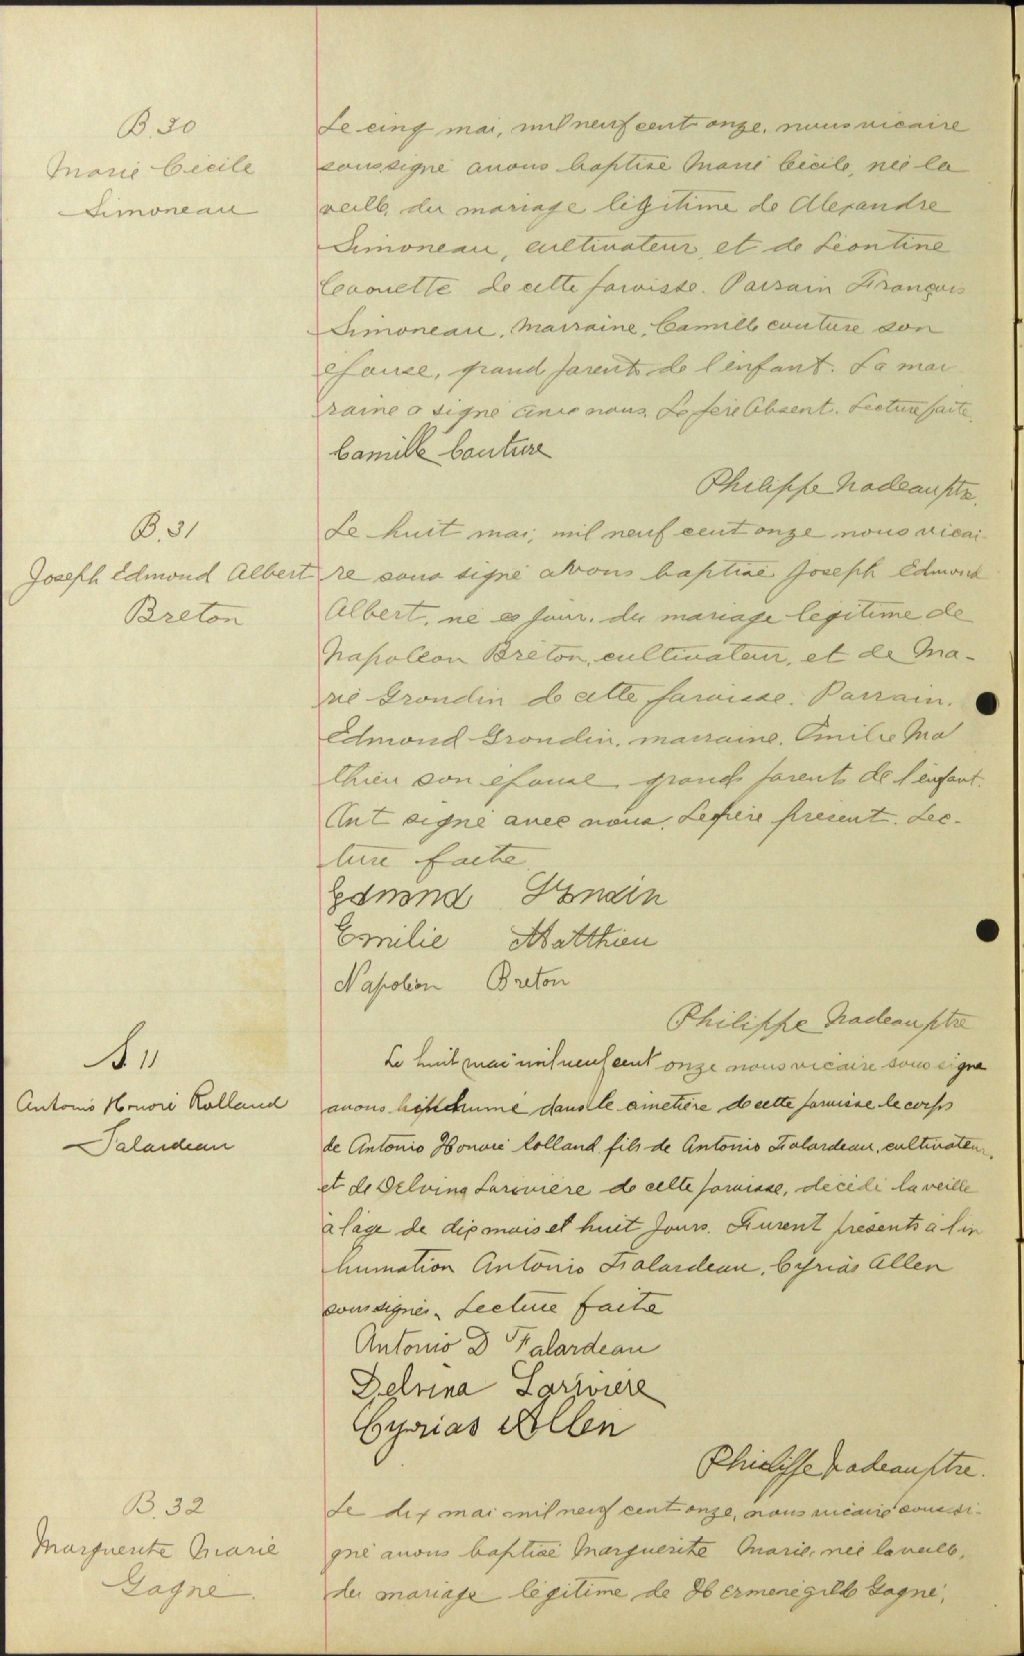 B. 30
Marie Cécile
Simoneau
Le cinq mai, mil neuf cent onze, nous vicaire
soussigné avons baptisé Marie Cécile, née la
veille, du mariage légitime de Alexandre
Simoneau, cultivateur, et de Léontine
Caouette de cette paroisse. Parrain François
Simoneau, Marraine, Camille couture son
épouse, grand parents de l'enfant. La mar
raine a signé avec nous. Le père Absent. Lecture faite.
Camille Couture
Philippe Nadeau ptre.
B. 31
Joseph Edmond Albert
Breton
Le huit mai, mil neuf cent onze nous vicai-
re sous signé avons baptisé Joseph Edmond
Albert, né ce jour, du mariage légitime de
Napoléon Breton, cultivateur, et de Ma-
rie Grondin de cette paroisse. Parrain,
Edmond Grondin, marraine, Emilie Ma
thieu son épouse grands parents de l'enfant.
Ont signé avec nous. Le père présent. Lec-
ture faite
Edmond Grondin
Emilie Matthieu
Napoléon Breton
Philippe Nadeau ptre
S. 11
Antonio Honoré Rolland
Falardeau
Le huit mai mil neuf cent onze nous vicaire sous signé
avons inhumé dans le cimetière de cette paroisse le corps
de Antonio Honoré Rolland fils de Antonio Falardeau, cultivateur,
et de Delvina Larivière de cette paroisse, décédé la veille
à l'âge de dix mois et huit jours. Furent présents à l'in
humation Antonio Falardeau, Cyrias Allen
soussignés. Lecture faite
Antonio D Falardeau
Delvina Larivière
Cyrias Allen
Philippe Nadeau ptre.
B. 32
Marguerite Marie
Gagné
Le dix mai mil neuf cent onze, nous vicaire soussi-
gné avons baptisé Marguerite Marie, née la veille,
du mariage légitime de Hermenégilde Gagné,